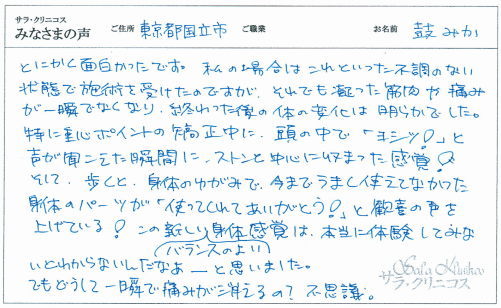 サラ・クリニコス
みなさまの声
ご住所 東京都国立市 ご職業 お名前 鼓 みか
とにかく面白かったです。私の場合はこれといった不調のない
状態で施術を受けたのですが、それでも凝った筋肉や痛み
が一瞬でなくなり、終わった後の体の変化は明らかでした。
特に重心ポイントの矯正中に、頭の中で「ヨシッ!」と
声が聞こえた瞬間に、ストンと中心に収まった感覚!
そして、歩くと、身体のゆがみで、今までうまく使えてなかった
身体のパーツが「使ってくれてありがとう!」と歓喜の声を
上げている! この新しい身体感覚は、本当に体験してみな
バランスのよい
いとわからないんだなぁ―と思いました。
でもどうして一瞬で痛みが消えるの? 不思議。
Sala Clinikos
サラ・クリニコス